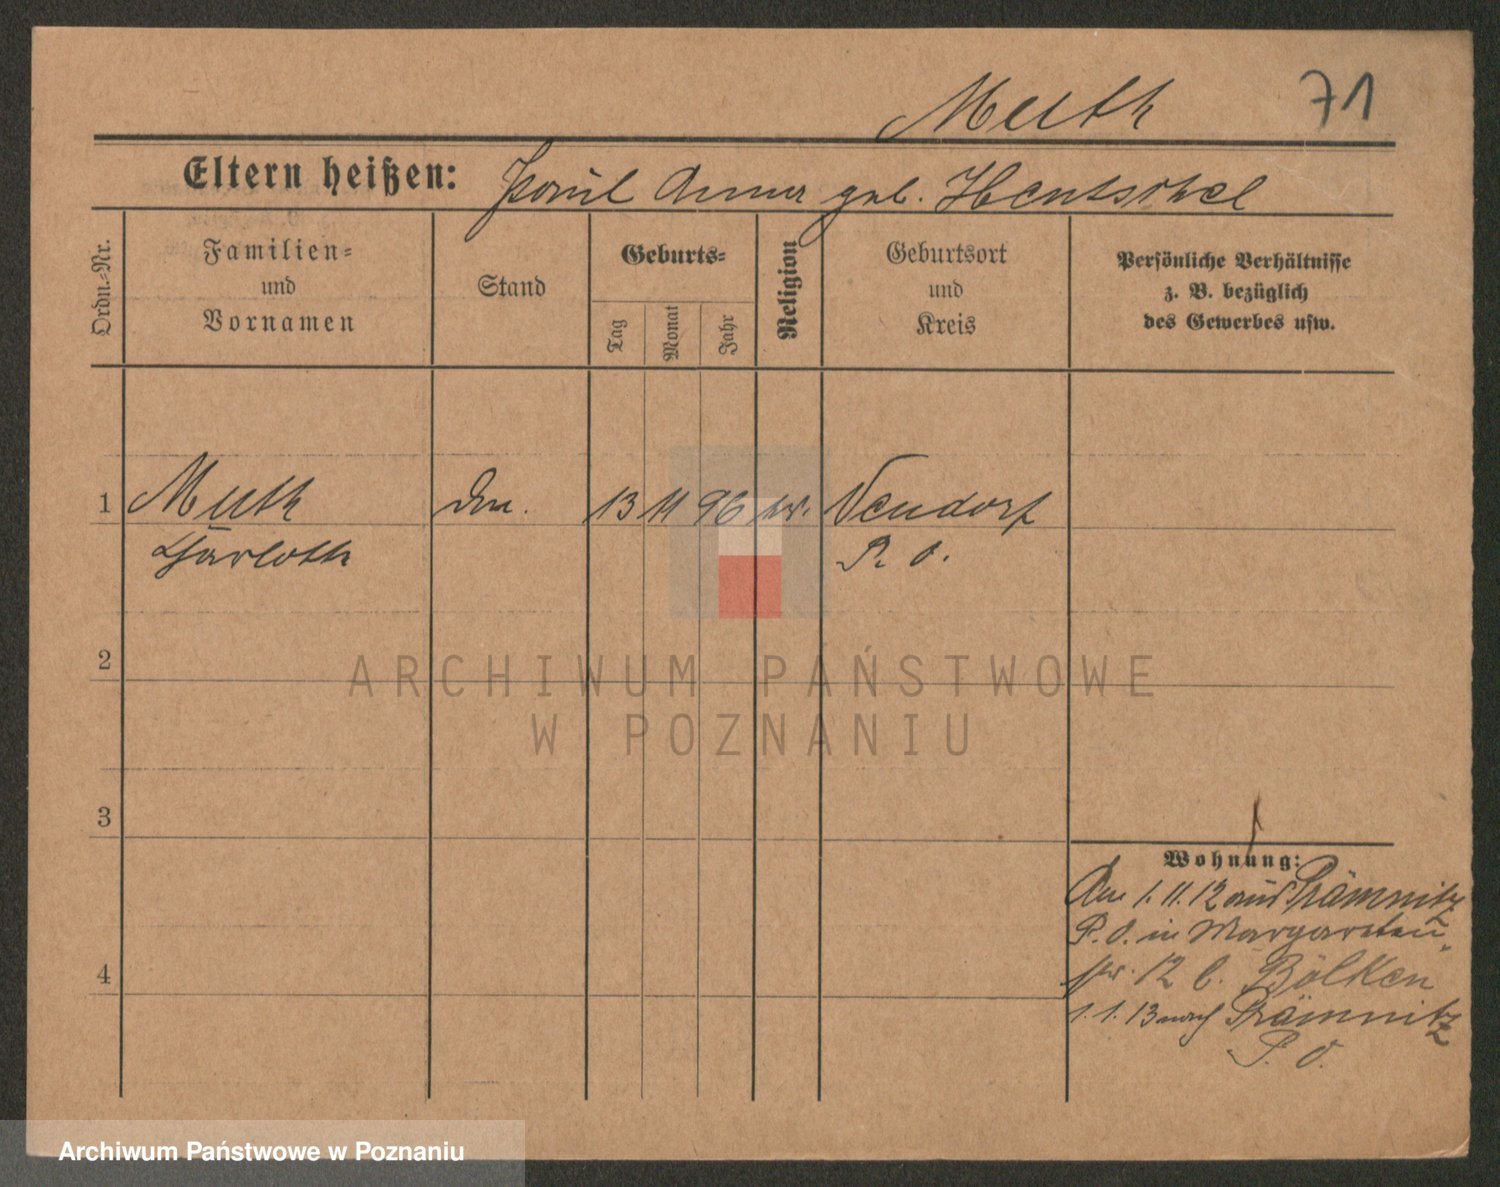 Muth 71
Eltern heißen: Paul Anna geb. Hentschel
Ordn.-Nr.
Familien-
und
Vornamen
Stand
Geburts-
Tag
Monat
Jahr
Religion
Geburtsort
und
Kreis
Persönliche Verhältnisse
z. B. bezüglich
des Gewerbes usw.
1 Muth 13 11 96 Neudorf
Charlotte P. O.
2
3
4
Wohnung:
Am 1. 11. 12 aus Prämnitz
P. O. in Margareten-
str. 12 b. Bölken
1. 1. 13 nach Prämnitz
P. O.
ARCHIWUM PAŃSTWOWE
W POZNANIU
Archiwum Państwowe w Poznaniu